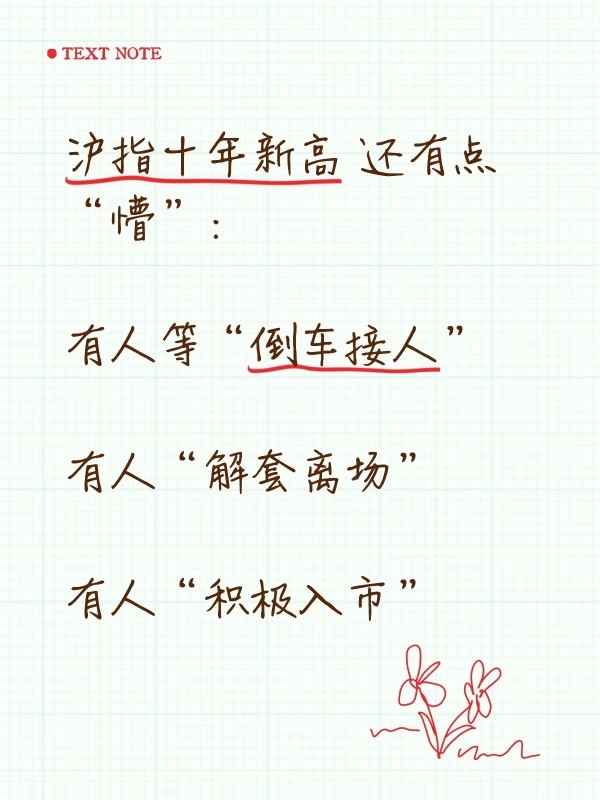 TEXT NOTE
沪指十年新高 还有点
“懵”：
有人等“倒车接人”
有人“解套离场”
有人“积极入市”